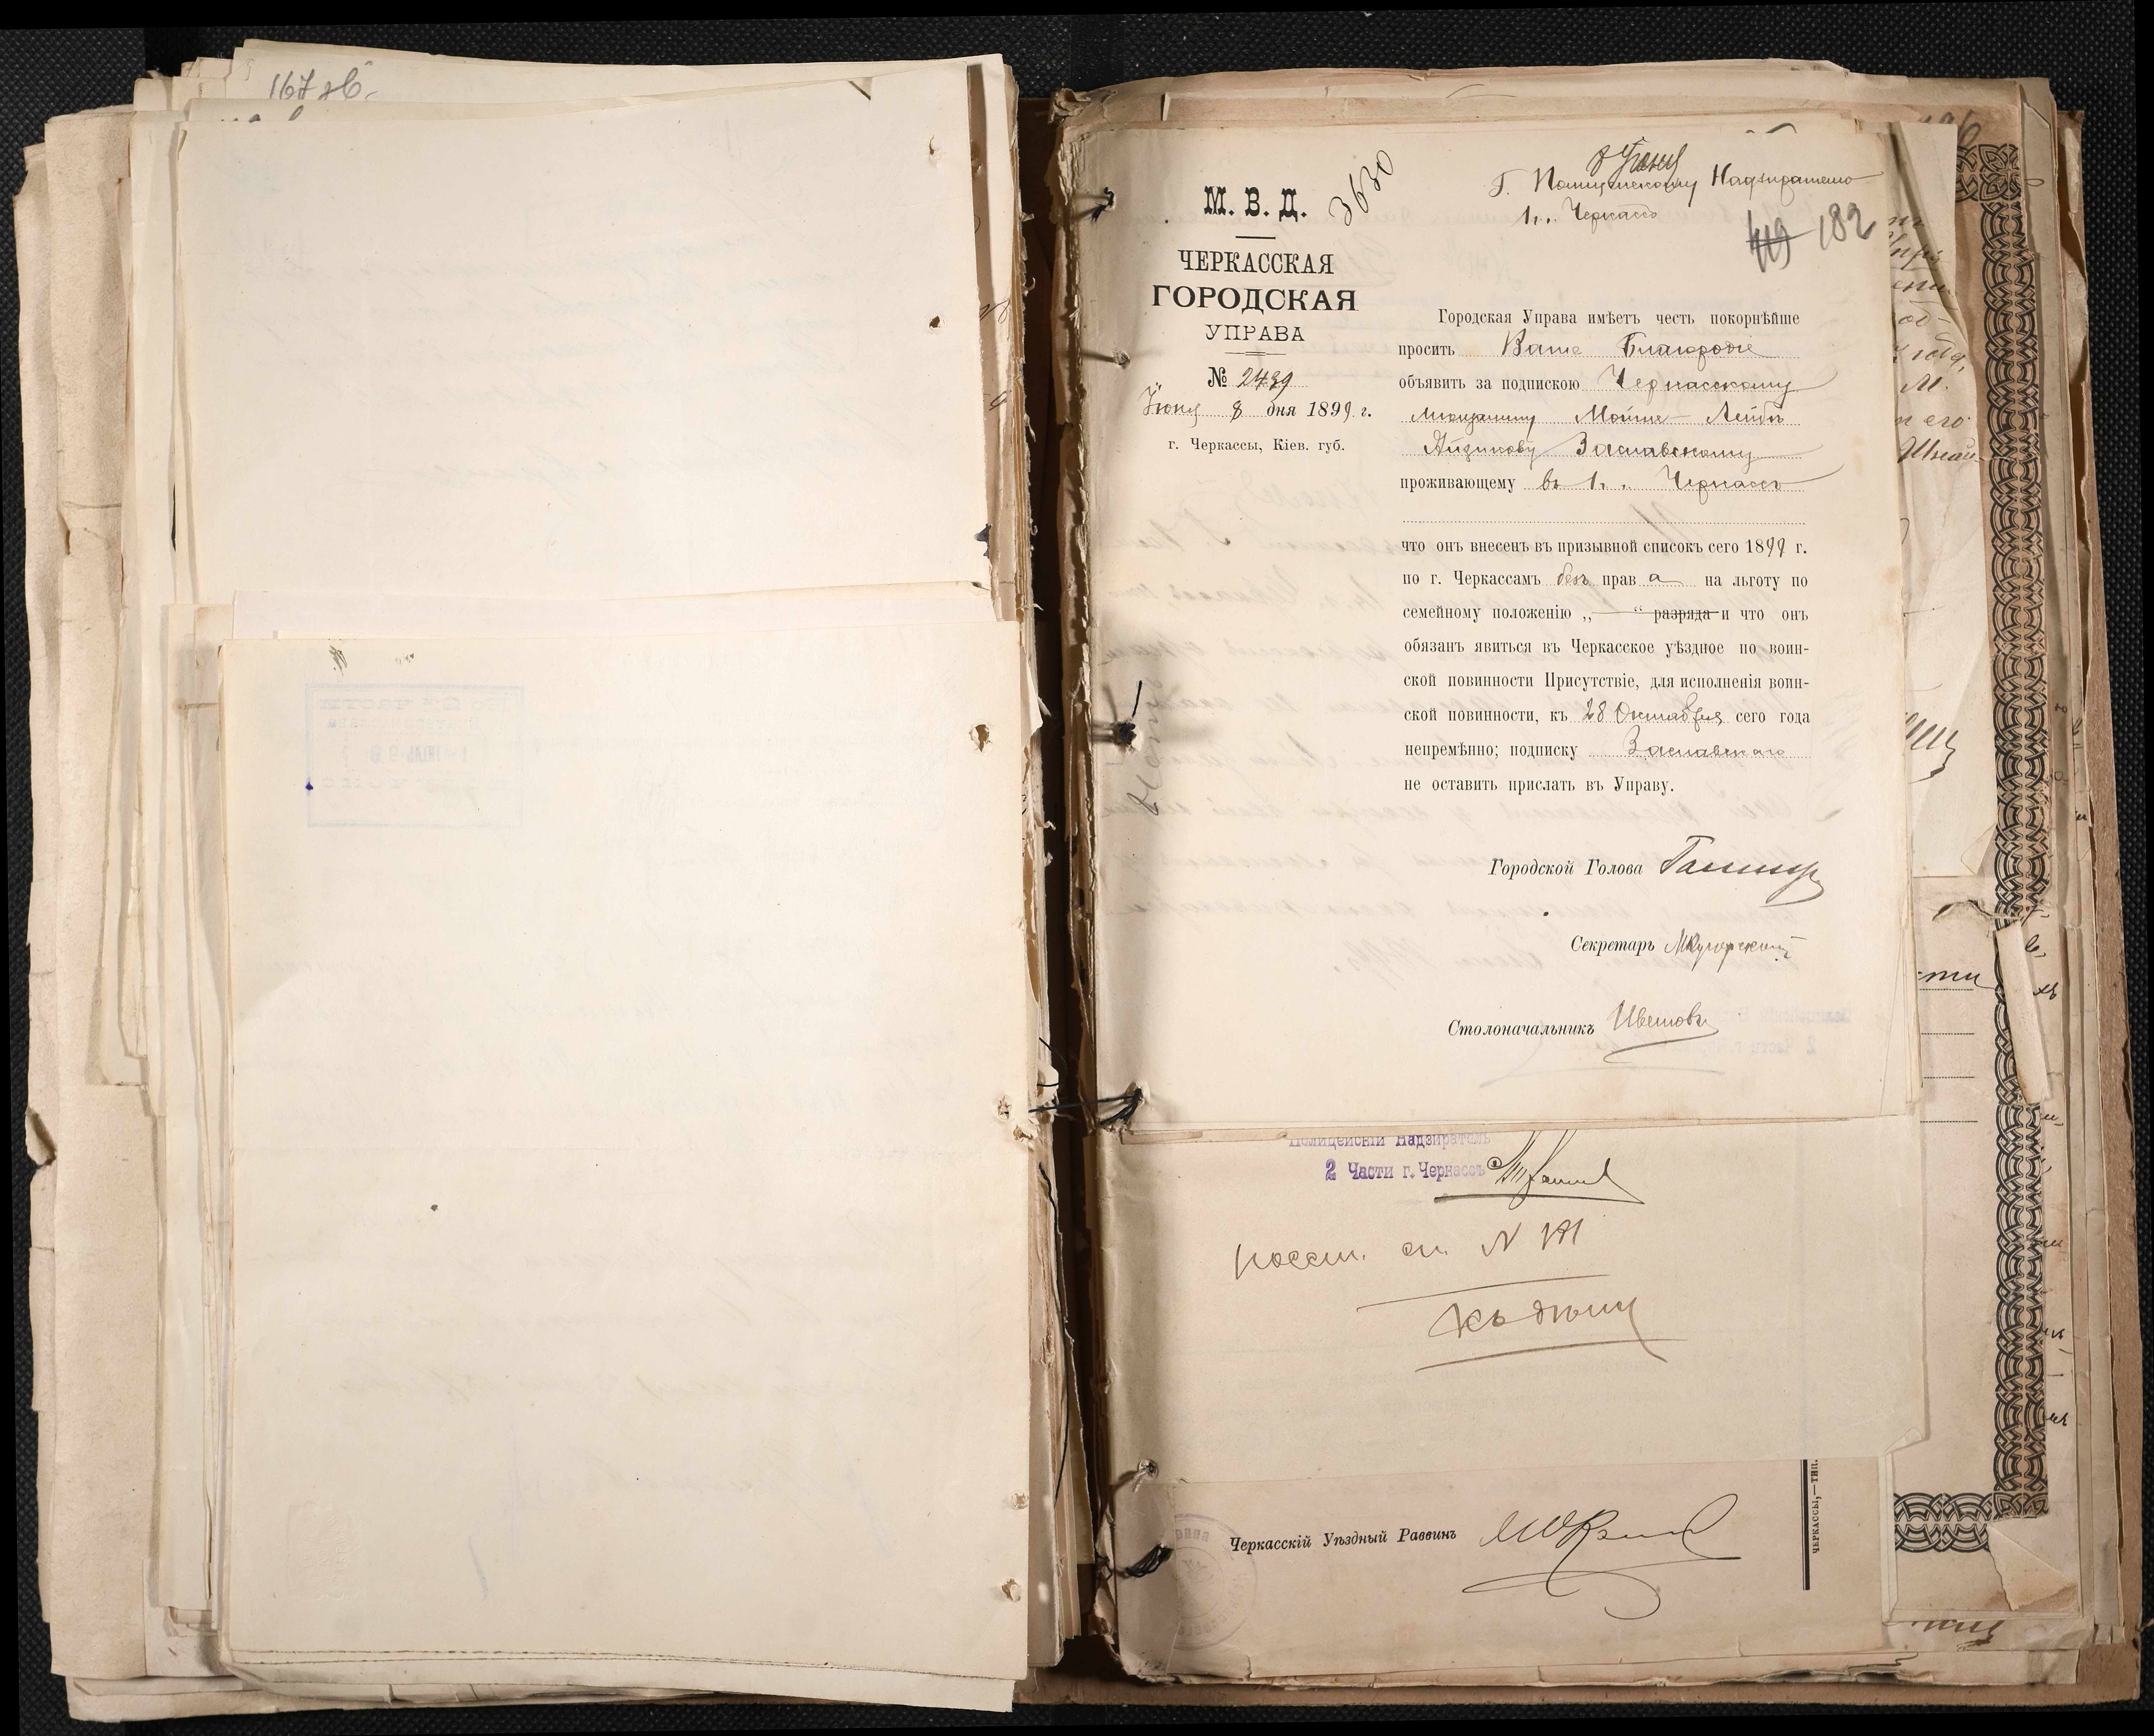 167 об.
3630
Г. Полицейскому Надзирателю
г. Черкассъ
М. В. Д.
419 182
ЧЕРКАССКАЯ
ГОРОДСКАЯ
УПРАВА
№ 2439
Іюня 8 дня 1899 г.
г. Черкассы, Кіев. губ.
Городская Управа имѣетъ честь покорнѣйше
просить Ваше Благородіе
объявить за подпискою Черкасскому
мѣщанину Мойше-Лейбѣ
Айзикову Заславскому
проживающему въ г. Черкассъ
что онъ внесенъ въ призывной списокъ сего 1899 г.
по г. Черкассамъ безъ права на льготу по
семейному положенію „—“ разряда и что онъ
обязанъ явиться въ Черкасское уѣздное по воин-
ской повинности Присутствіе, для исполненія воин-
ской повинности, къ 28 Октября сего года
непремѣнно; подписку Заславскаго
не оставить прислать въ Управу.
Городской Голова
Секретарь
Столоначальникъ
Полицейскій Надзиратель
2 Части г. Черкассъ
№ 181
Къ дѣлу
Черкасскій Уѣздный Раввинъ
ЧЕРКАССЫ,—ТИП.